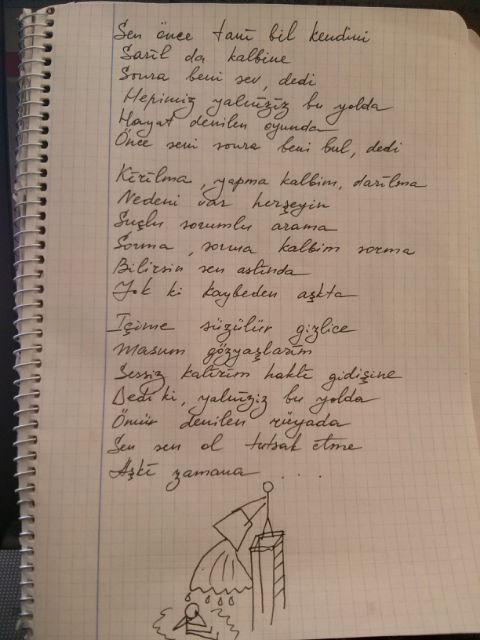 Sen önce tanı bil kendini
Sarıl da kalbine
Sonra beni sev, dedi
Hepimiz yalnızız bu yolda
Hayat denilen oyunda
Önce seni sonra beni bul, dedi
Kırılma, yapma kalbim, darılma
Nedeni var herşeyin
Suçlu sorumlu arama
Sorma, sorma kalbim sorma
Bilirsin sen aslında
Yok ki kaybeden aşkta
İçime süzülür gizlice
Masum gözyaşlarım
Sessiz kalırım haklı gidişine
Dedi ki, yalnızız bu yolda
Ömür denilen rüyada
Sen sen ol tutsak etme
Aşkı zamana ....